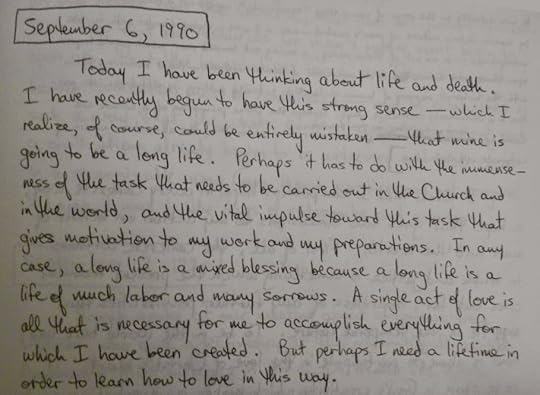 September 6, 1990
Today I have been thinking about life and death.
I have recently begun to have this strong sense — which I
realize, of course, could be entirely mistaken — that mine is
going to be a long life. Perhaps it has to do with the immense-
ness of the task that needs to be carried out in the Church and
in the world, and the vital impulse toward this task that
gives motivation to my work and my preparations. In any
case, a long life is a mixed blessing because a long life is a
life of much labor and many sorrows. A single act of love is
all that is necessary for me to accomplish everything for
which I have been created. But perhaps I need a lifetime in
order to learn how to love in this way.